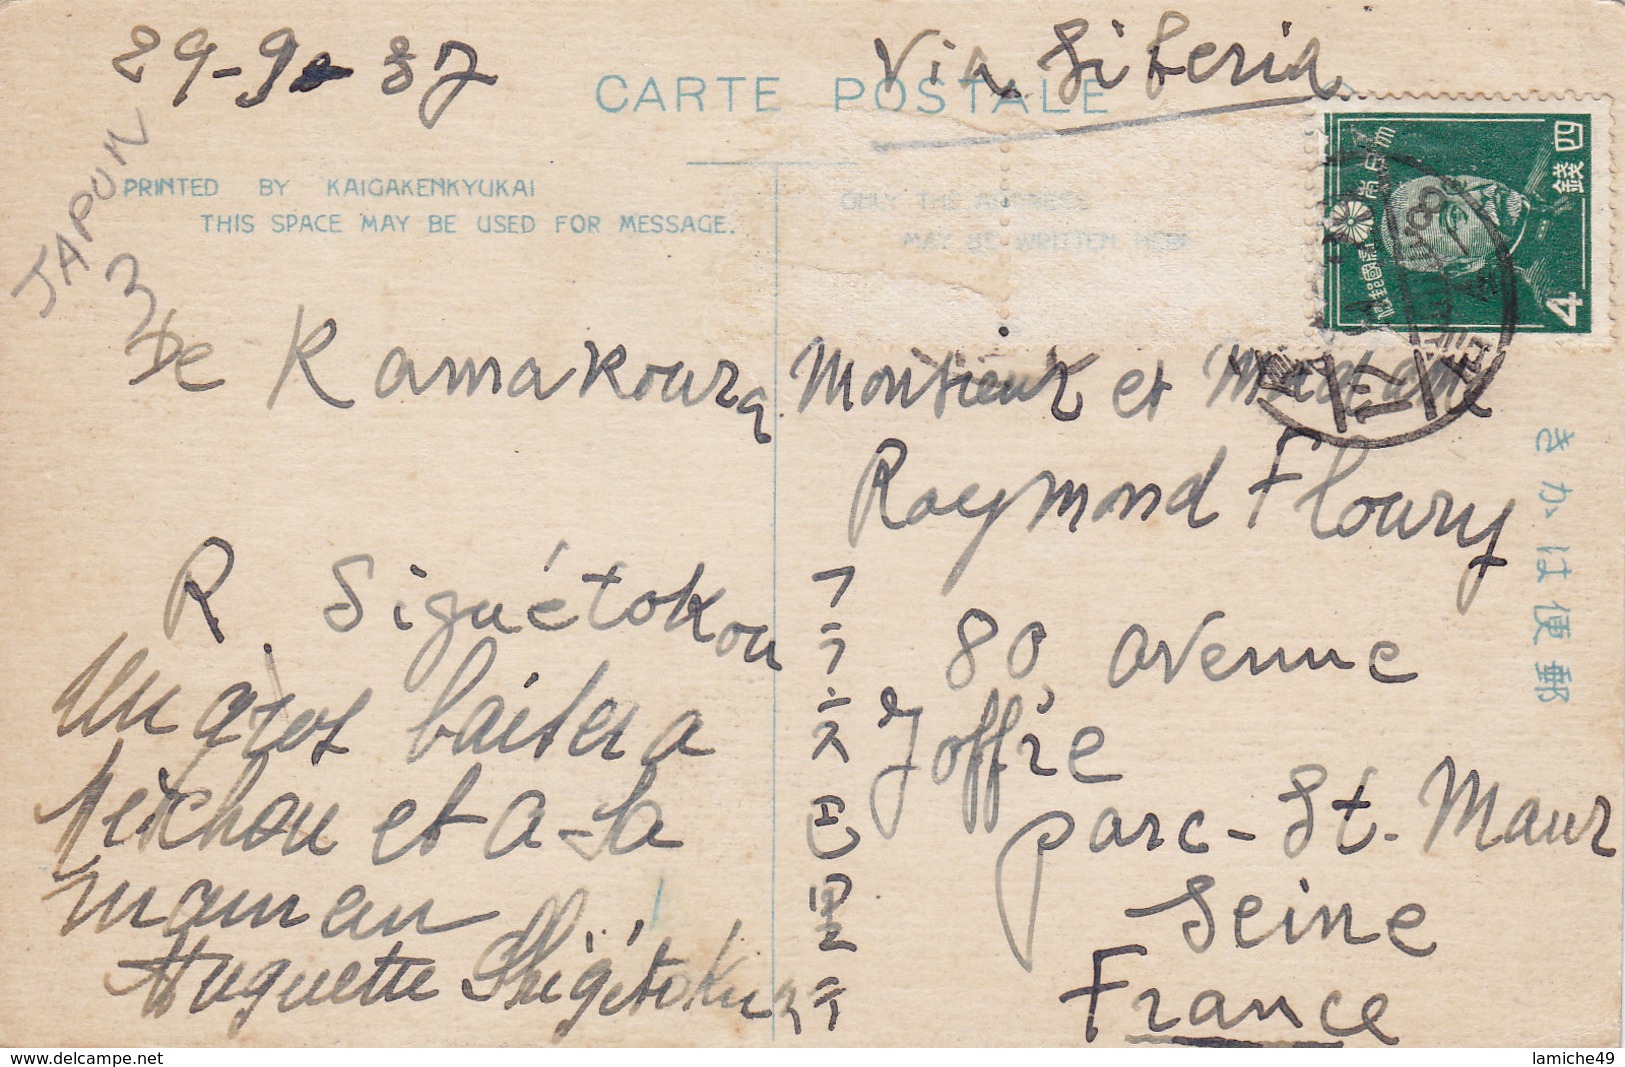 29-9-37
Via Siberia
CARTE POSTALE
JAPON
3
PRINTED BY KAIGAKENKYUKAI
THIS SPACE MAY BE USED FOR MESSAGE.
ONLY THE ADDRESS
MAY BE WRITTEN HERE
大日本帝国郵便
四銭
4
De Kamakoura
R Siguétokou
Un gros baiser a
Michou et a la
maman
Huguette Shigétokou
Monsieur et Madame
Raymond Floury
80, avenue
Joffre
parc-St.-Maur
Seine
France
フランス
巴里市
きかは便郵
www.delcampe.net
lamiche49